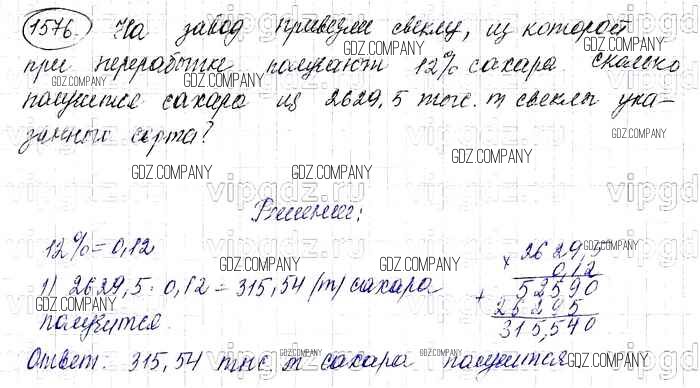 1576. На завод привезли свеклу, из которой
при переработке получают 12% сахара. Сколько
получится сахара из 2629,5 тыс. т свеклы ука-
занного сорта?
Решение:
12% = 0,12
1) 2629,5 · 0,12 = 315,54 (т) сахара
получится.
× 2629,5
0,12
+ 52590
26295
315,540
Ответ: 315,54 тыс. т сахара получится
GDZ.COMPANY
GDZ.COMPANY
GDZ.COMPANY
GDZ.COMPANY
GDZ.COMPANY
GDZ.COMPANY
GDZ.COMPANY
GDZ.COMPANY
GDZ.COMPANY
GDZ.COMPANY
GDZ.COMPANY
GDZ.COMPANY
vipgdz.ru
vipgdz.ru
vipgdz.ru
vipgdz.ru